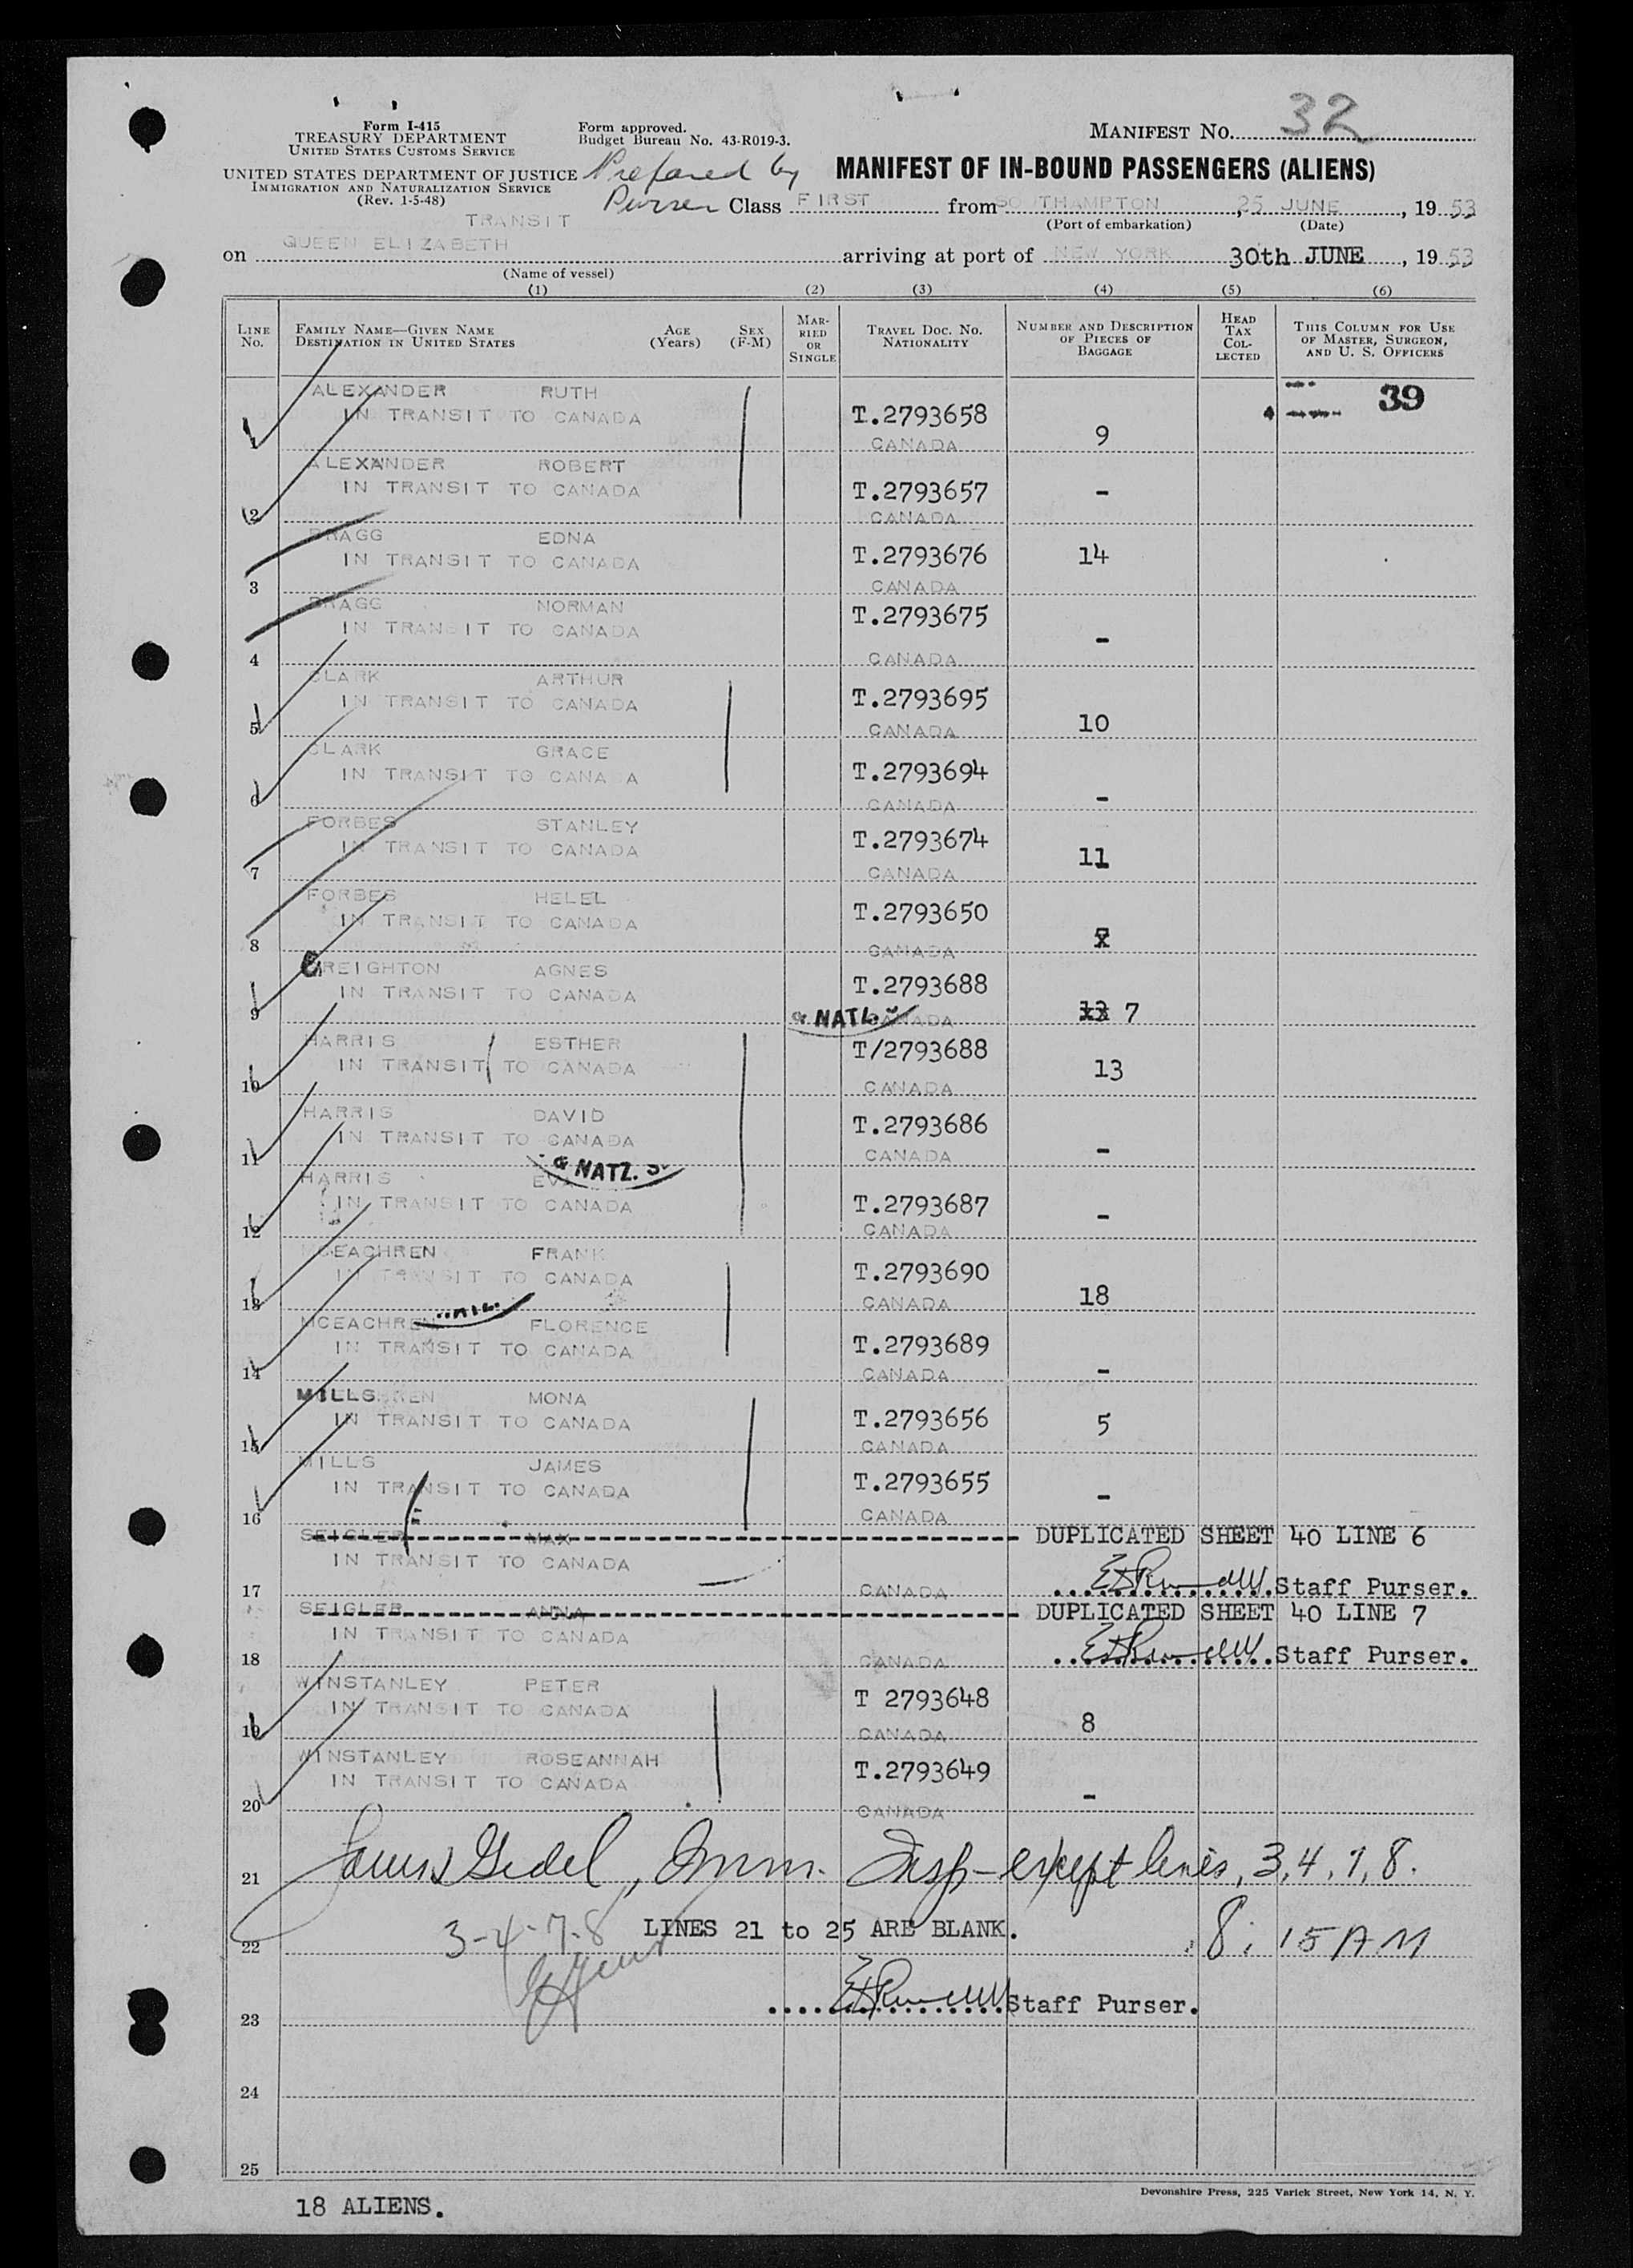 Form I-415
TREASURY DEPARTMENT
UNITED STATES CUSTOMS SERVICE
UNITED STATES DEPARTMENT OF JUSTICE
IMMIGRATION AND NATURALIZATION SERVICE
(Rev. 1-5-48)
Form approved.
Budget Bureau No. 43-R019-3.
Prepared by
Purser
MANIFEST NO. 32
MANIFEST OF IN-BOUND PASSENGERS (ALIENS)
TRANSIT
Class FIRST from SOUTHAMPTON, 25 JUNE, 19 53
(Port of embarkation) (Date)
on QUEEN ELIZABETH arriving at port of NEW YORK 30th JUNE, 19 53
(Name of vessel)
(1) (2) (3) (4) (5) (6)
LINE NO. FAMILY NAME—GIVEN NAME DESTINATION IN UNITED STATES AGE (YEARS) SEX (F-M) MARRIED OR SINGLE TRAVEL DOC. NO. NATIONALITY NUMBER AND DESCRIPTION OF PIECES OF BAGGAGE HEAD TAX COLLECTED THIS COLUMN FOR USE OF MASTER, SURGEON, AND U. S. OFFICERS
39
ALEXANDER RUTH
IN TRANSIT TO CANADA T.2793658
1 CANADA 9
ALEXANDER ROBERT
IN TRANSIT TO CANADA T.2793657 -
2 CANADA
BRAGG EDNA
IN TRANSIT TO CANADA T.2793676 14
3 CANADA
BRAGG NORMAN T.2793675
IN TRANSIT TO CANADA -
4 CANADA
CLARK ARTHUR
IN TRANSIT TO CANADA T.2793695
5 CANADA 10
CLARK GRACE
IN TRANSIT TO CANA A T.2793694
6 CANADA -
FORBES STANLEY
IN TRANSIT TO CANADA T.2793674
7 CANADA 11
FORBES HELEL
IN TRANSIT TO CANADA T.2793650
8 CANADA
CREIGHTON AGNES
IN TRANSIT TO CANADA T.2793688
9 & NATL. CANADA 13 7
HARRIS ESTHER T/2793688
IN TRANSIT TO CANADA 13
10 CANADA
HARRIS DAVID
IN TRANSIT TO CANADA T.2793686
11 CANADA -
& NATZ. S.
HARRIS EVA
IN TRANSIT TO CANADA T.2793687 -
12 CANADA
MCEACHREN FRANK
IN TRANSIT TO CANADA T.2793690
13 CANADA 18
MCEACHREN FLORENCE
IN TRANSIT TO CANADA T.2793689
14 CANADA -
MILLS MONA
IN TRANSIT TO CANADA T.2793656 5
15 CANADA
MILLS JAMES
IN TRANSIT TO CANADA T.2793655 -
16 CANADA
SEIGLER MAX DUPLICATED SHEET 40 LINE 6
IN TRANSIT TO CANADA
17 CANADA Staff Purser.
SEIGLER ANNA DUPLICATED SHEET 40 LINE 7
IN TRANSIT TO CANADA
18 CANADA Staff Purser.
WINSTANLEY PETER
IN TRANSIT TO CANADA T 2793648
19 CANADA 8
WINSTANLEY ROSEANNAH
IN TRANSIT TO CANADA T.2793649
20 CANADA -
21 Imm. Insp - except lines, 3, 4, 7, 8.
22 3-4-7-8 LINES 21 to 25 ARE BLANK. 8:15 AM
23 Staff Purser.
24
25
18 ALIENS.
Devonshire Press, 225 Varick Street, New York 14, N. Y.